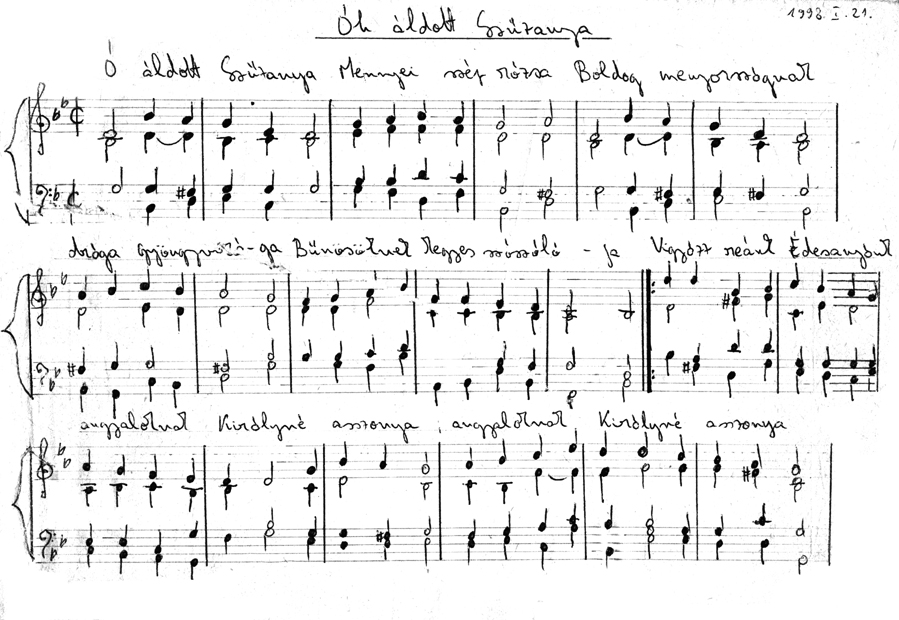 Óh áldott Szűzanya
1993 I. 21.
Ó áldott Szűzanya Mennyei szép rózsa Boldog menyországnak
drága gyöngyvirá-ga Bűnösöknek kegyes szószóló - ja Vigyázz reánk Édesanyánk
angyaloknak Királyné asszonya angyaloknak Királyné asszonya